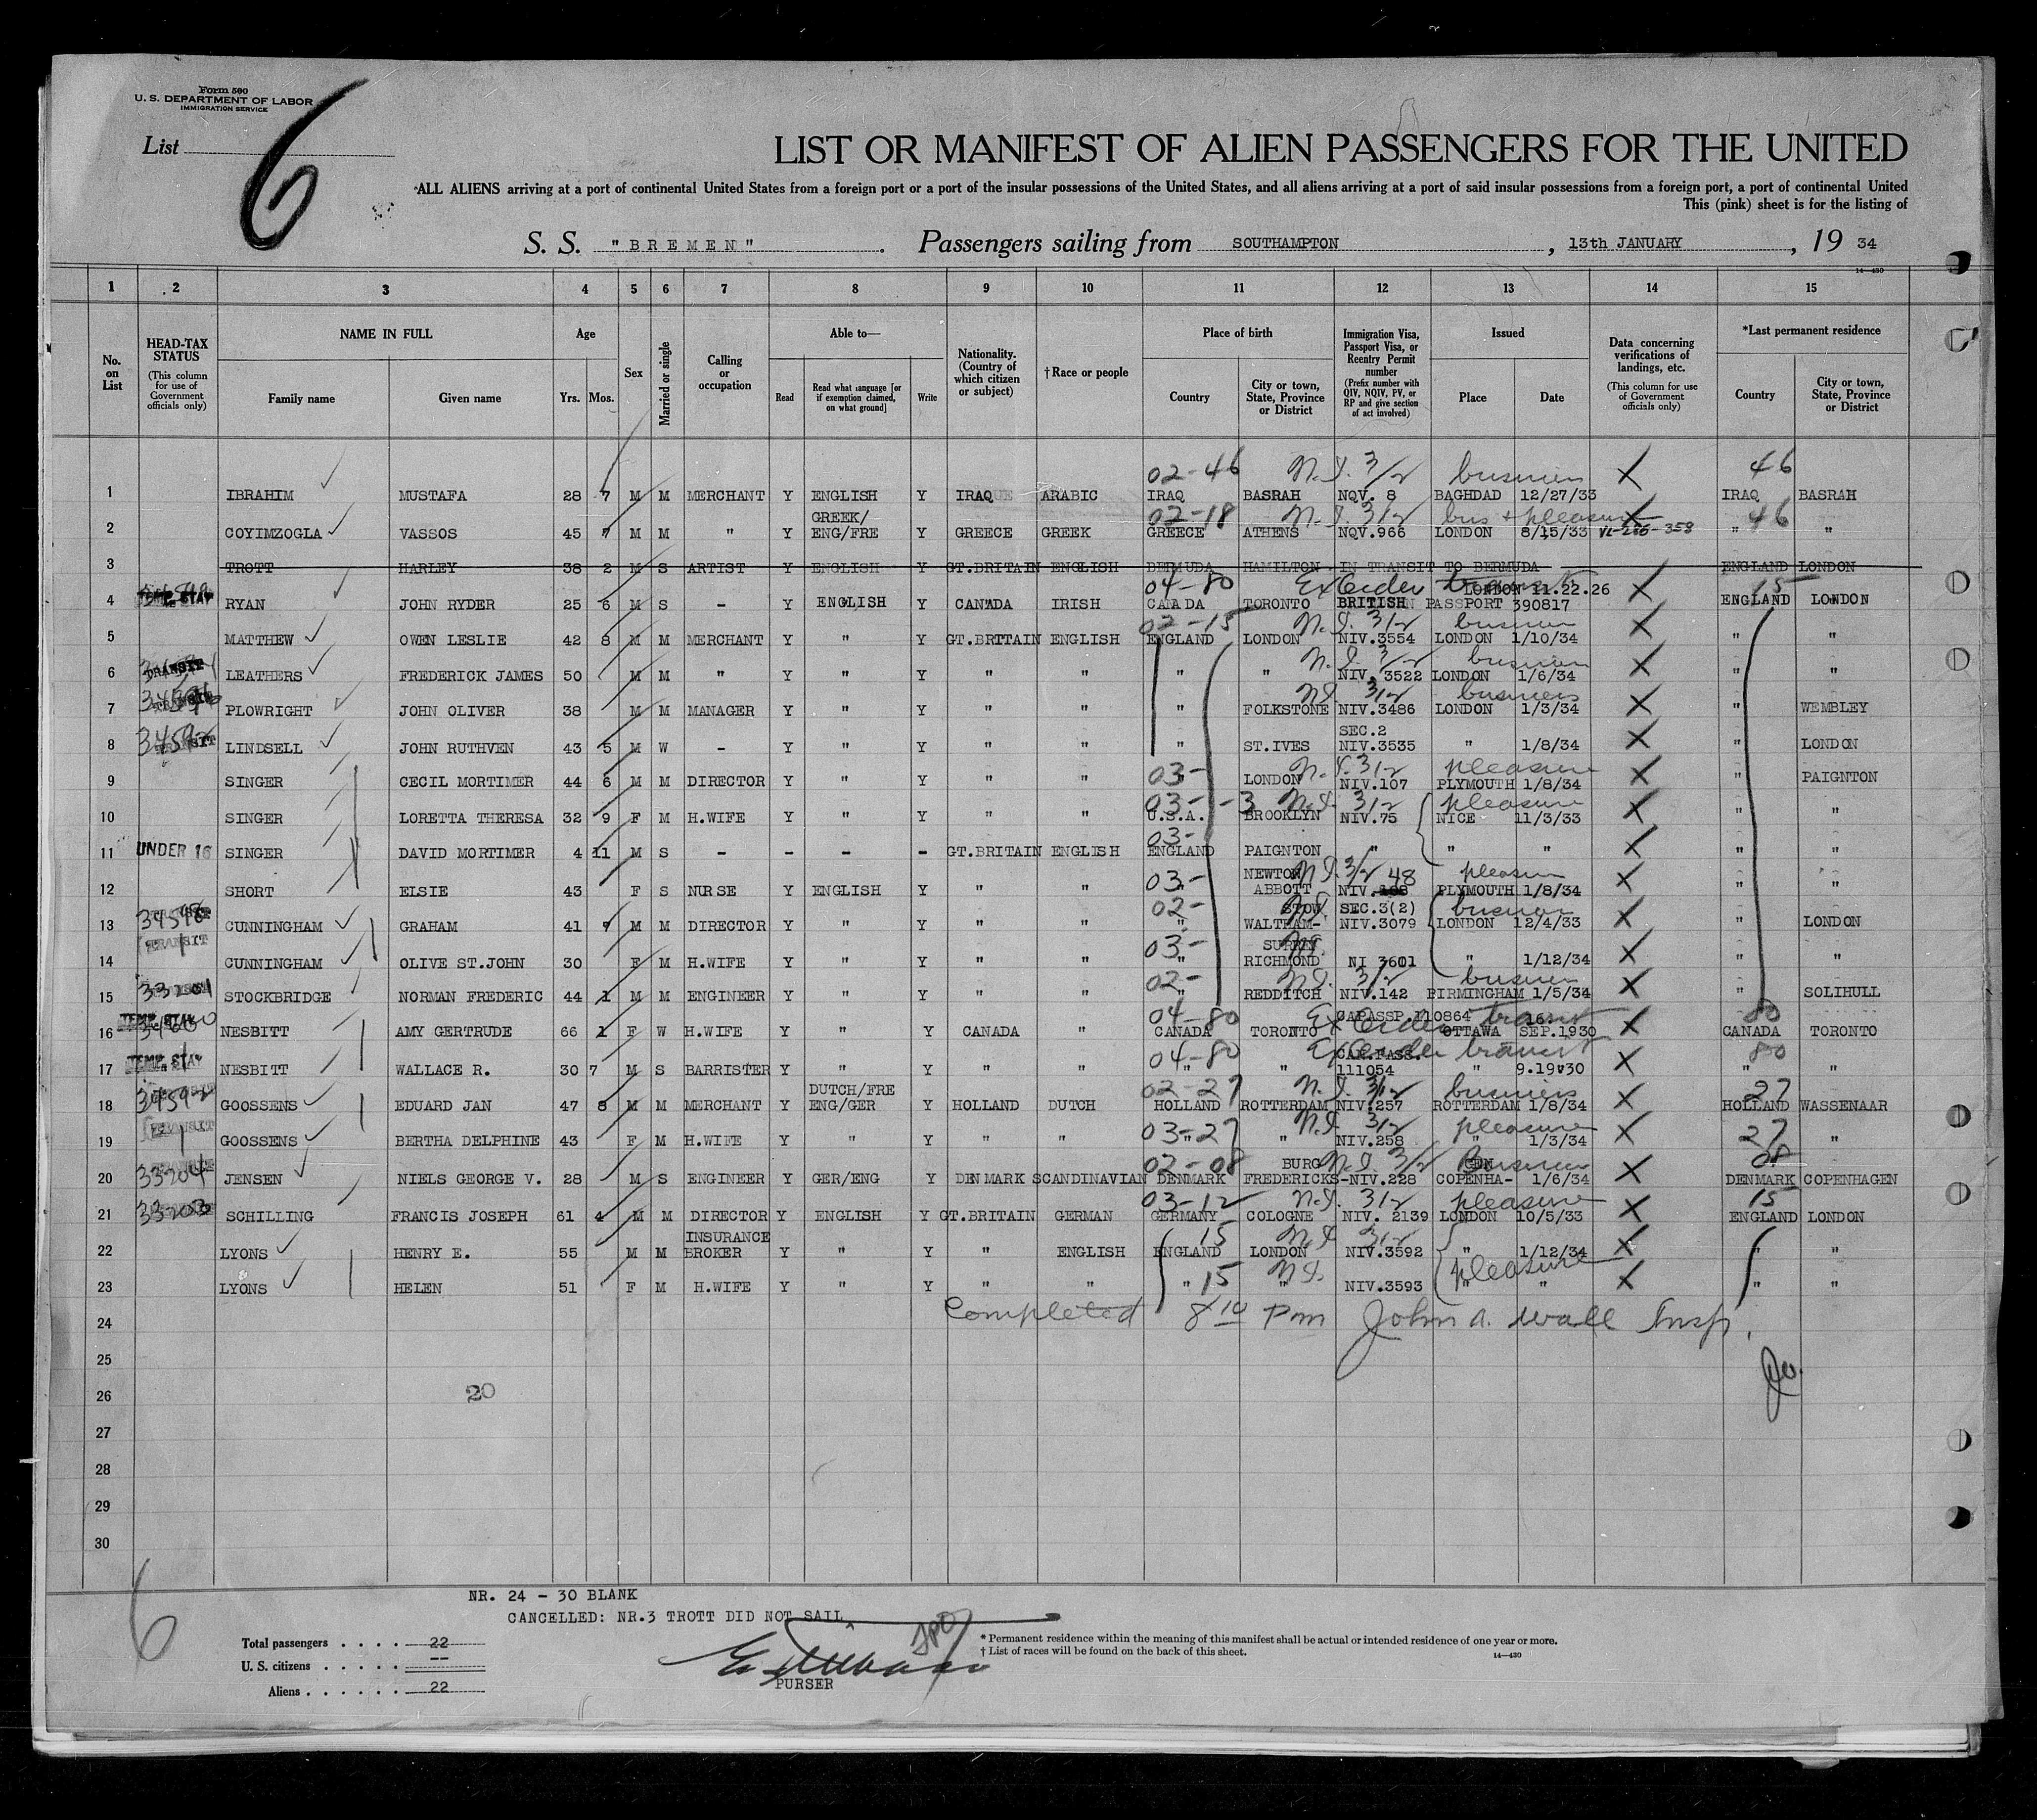 Form 500
U. S. DEPARTMENT OF LABOR
IMMIGRATION SERVICE
List 6
LIST OR MANIFEST OF ALIEN PASSENGERS FOR THE UNITED
ALL ALIENS arriving at a port of continental United States from a foreign port or a port of the insular possessions of the United States, and all aliens arriving at a port of said insular possessions from a foreign port, a port of continental United
This (pink) sheet is for the listing of
S. S. "BREMEN". Passengers sailing from SOUTHAMPTON, 13th JANUARY, 19 34
14—430
1 2 3 4 5 6 7 8 9 10 11 12 13 14 15
No. on List
HEAD-TAX STATUS (This column for use of Government officials only)
NAME IN FULL Family name Given name
Age Yrs. Mos.
Sex
Married or single
Calling or occupation
Able to— Read Read what language [or if exemption claimed, on what ground] Write
Nationality. (Country of which citizen or subject)
†Race or people
Place of birth Country City or town, State, Province or District
Immigration Visa, Passport Visa, or Reentry Permit number (Prefix number with QIV, NQIV, PV, or RP and give section of act involved)
Issued Place Date
Data concerning verifications of landings, etc. (This column for use of Government officials only)
*Last permanent residence Country City or town, State, Province or District
02-46 N.I. 3/2 business 46
1 IBRAHIM MUSTAFA 28 7 M M MERCHANT Y ENGLISH Y IRAQ ARABIC IRAQ BASRAH NQV. 8 BAGHDAD 12/27/33 IRAQ BASRAH
GREEK/ 02-18 N.I. 3/2 bus + pleasure 46
2 COYIMZOGLA VASSOS 45 7 M M " Y ENG/FRE Y GREECE GREEK GREECE ATHENS NQV.966 LONDON 8/15/33 " "
3 TROTT HARLEY 38 2 M S ARTIST Y ENGLISH Y GT.BRITAIN ENGLISH BERMUDA HAMILTON IN TRANSIT TO BERMUDA ENGLAND LONDON
TEMP. STAY 04-80 Ex Order transit LONDON 11.22.26 15
4 RYAN JOHN RYDER 25 6 M S - Y ENGLISH Y CANADA IRISH CANADA TORONTO BRITISH PASSPORT 390817 ENGLAND LONDON
02-15 N.I. 3/2 business
5 MATTHEW OWEN LESLIE 42 8 M M MERCHANT Y " Y GT.BRITAIN ENGLISH ENGLAND LONDON NIV.3554 LONDON 1/10/34 " "
TRANSIT N.I. 3/2 business
6 LEATHERS FREDERICK JAMES 50 M M " Y " Y " " " " NIV. 3522 LONDON 1/6/34 " "
N.I. 3/2 business
7 PLOWRIGHT JOHN OLIVER 38 M M MANAGER Y " Y " " " FOLKSTONE NIV.3486 LONDON 1/3/34 " WEMBLEY
SEC.2
8 LINDSELL JOHN RUTHVEN 43 5 M W - Y " Y " " " ST.IVES NIV.3535 " 1/8/34 " LONDON
03- N.I. 3/2 pleasure
9 SINGER CECIL MORTIMER 44 6 M M DIRECTOR Y " Y " " LONDON NIV.107 PLYMOUTH 1/8/34 " PAIGNTON
03- -3 N.I. 3/2 pleasure
10 SINGER LORETTA THERESA 32 9 F M H.WIFE Y " Y " " U.S.A. BROOKLYN NIV.75 NICE 11/3/33 " "
03-
11 UNDER 16 SINGER DAVID MORTIMER 4 11 M S - - - - GT.BRITAIN ENGLISH ENGLAND PAIGNTON " " " " "
03- NEWTON N.I. 3/2 48 pleasure
12 SHORT ELSIE 43 F S NURSE Y ENGLISH Y " " " ABBOTT NIV. PLYMOUTH 1/8/34 " "
34598 02- STOW SEC.3(2) business
13 CUNNINGHAM GRAHAM 41 7 M M DIRECTOR Y " Y " " " WALTHAM- NIV.3079 LONDON 12/4/33 LONDON
TRANSIT 03- SURREY
14 CUNNINGHAM OLIVE ST.JOHN 30 F M H.WIFE Y " Y " " " RICHMOND NI 3601 " 1/12/34 " "
02- N.I. 3/2 business
15 STOCKBRIDGE NORMAN FREDERIC 44 1 M M ENGINEER Y " Y " " REDDITCH NIV.142 BIRMINGHAM 1/5/34 " SOLIHULL
TEMP. STAY 04-80 CAPASSP.110864 Ex Order transit 16. 80
16 NESBITT AMY GERTRUDE 66 1 F W H.WIFE Y " Y CANADA " CANADA TORONTO OTTAWA SEP.1930 CANADA TORONTO
TEMP. STAY 04-80 Ex Order transit CAN.PASS. 80
17 NESBITT WALLACE R. 30 7 M S BARRISTER Y " Y " " " " 111054 " 9.19.30 " "
DUTCH/FRE 02-27 N.I. 3/2 business 27
18 GOOSSENS EDUARD JAN 47 8 M M MERCHANT Y ENG/GER Y HOLLAND DUTCH HOLLAND ROTTERDAM NIV.257 ROTTERDAM 1/8/34 HOLLAND WASSENAAR
TRANSIT 03-27 N.I. 3/2 pleasure 27
19 GOOSSENS BERTHA DELPHINE 43 F M H.WIFE Y " Y " " " " NIV.258 " 1/3/34 "
33204 02-08 BURG N.I. 3/2 GEN business 08
20 JENSEN NIELS GEORGE V. 28 M S ENGINEER Y GER/ENG Y DENMARK SCANDINAVIAN DENMARK FREDERICKS- NIV.228 COPENHA- 1/6/34 DENMARK COPENHAGEN
33203 03-12 N.I. 3/2 pleasure 15
21 SCHILLING FRANCIS JOSEPH 61 4 M M DIRECTOR Y ENGLISH Y GT.BRITAIN GERMAN GERMANY COLOGNE NIV. 2139 LONDON 10/5/33 ENGLAND LONDON
INSURANCE 15 N.I. 3/2
22 LYONS HENRY E. 55 M M BROKER Y " Y " ENGLISH ENGLAND LONDON NIV.3592 " 1/12/34 " "
15 N.I. pleasure
23 LYONS HELEN 51 F M H.WIFE Y " Y " " " " NIV.3593 " " " "
24 Completed 8 10 pm John A. Wall Insp.
25
26 20
27
28
29
30
6
NR. 24 - 30 BLANK
CANCELLED: NR.3 TROTT DID NOT SAIL
Total passengers . . . . 22
U. S. citizens . . . . . --
Aliens . . . . . . 22
PURSER
* Permanent residence within the meaning of this manifest shall be actual or intended residence of one year or more.
† List of races will be found on the back of this sheet.
14—430